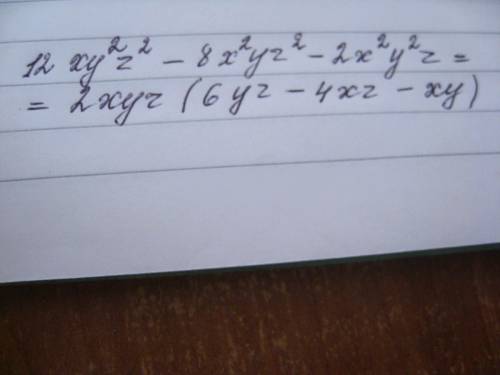 12 xy²z² − 8x²yz² − 2x²y²z =
= 2xyz (6yz − 4xz − xy)